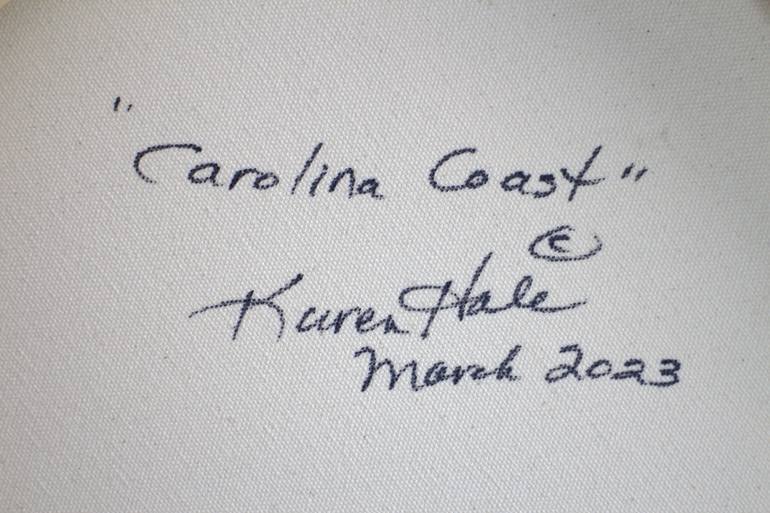 "Carolina Coast"
©
Karen Hale
March 2023